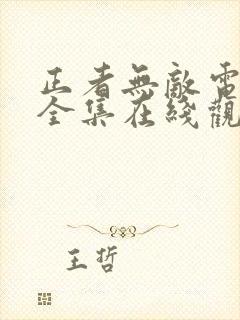 正者無敵電
全集在綫觀
王哲